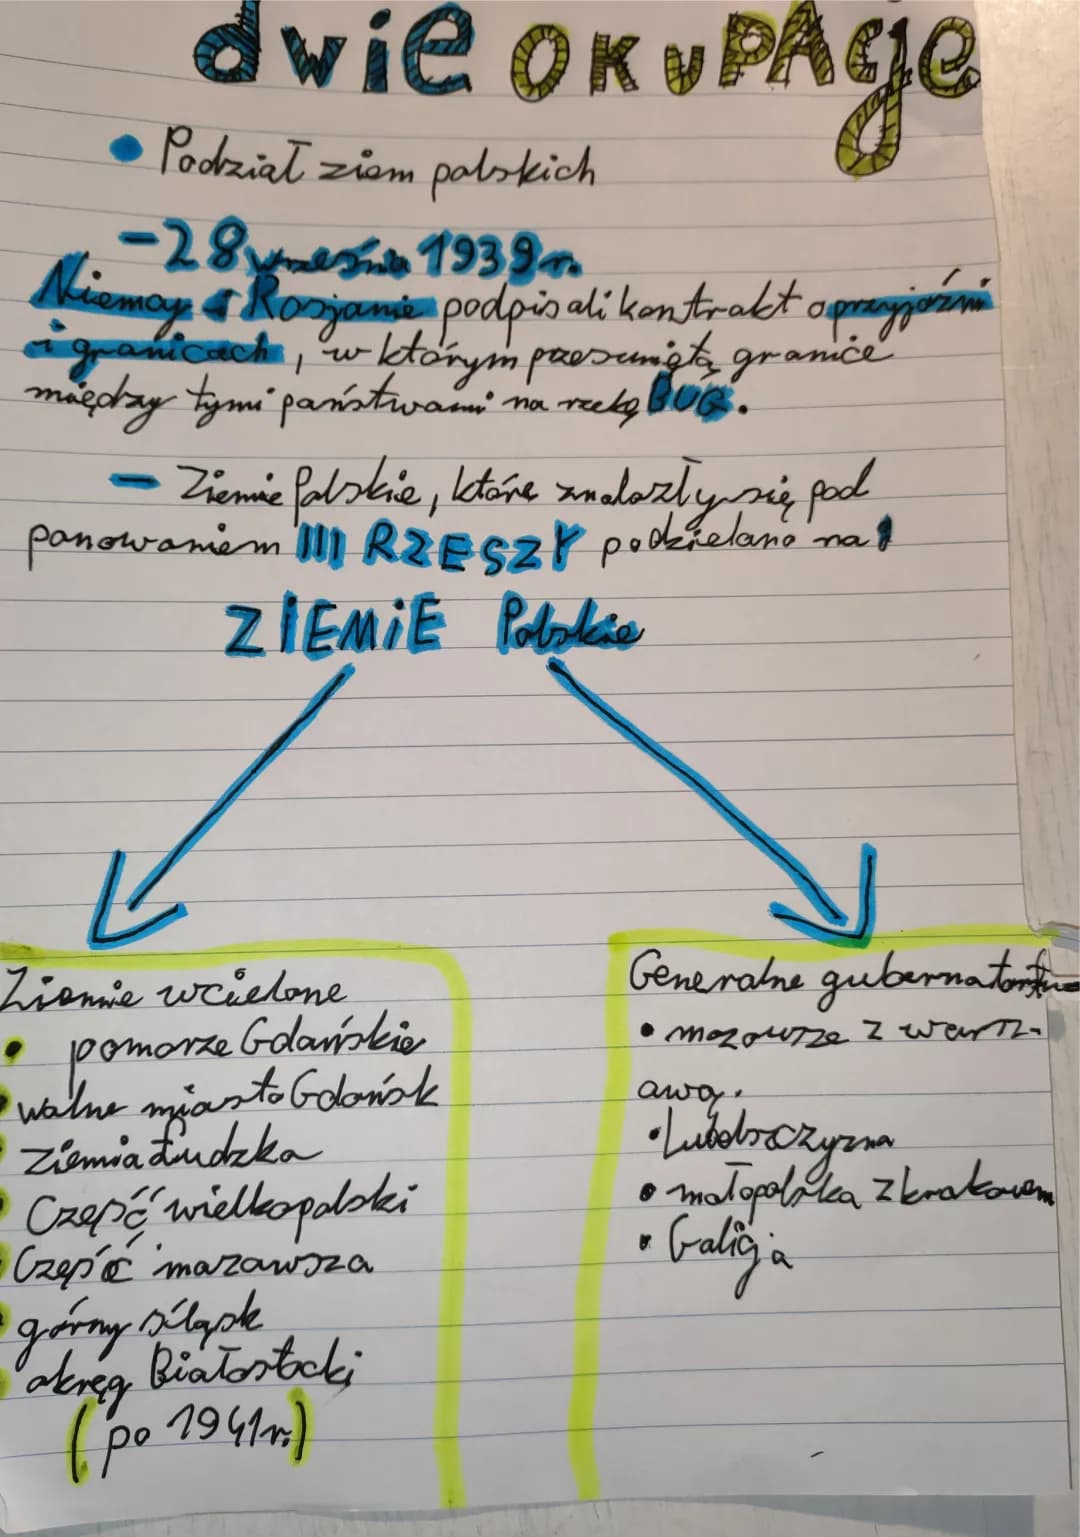 dwie okupacje
• Podział ziem polskich
- 28 września 1939r.
Niemcy i Rosjanie podpisali kontrakt o przyjaźni
i granicach, w którym przesunięta granice
między tymi państwami na rzekę BUG.
- Ziemie Polskie, które znalazły się pod
panowaniem III RZESZY podzielano na
ZIEMIE Polskie
Ziemie wcielone
• pomorze Gdańskie
• wolne miasto Gdańsk
• ziemia Łudzka
• Część wielkopolski
• Część mazowsza
• górny śląsk
• okręg Białostocki
(po 1941r.)
Generalne gubernatorstwo
• mazowsze z warsz-
awą.
• Lubelszczyzna
• małopolska z krakowem
• Galicja